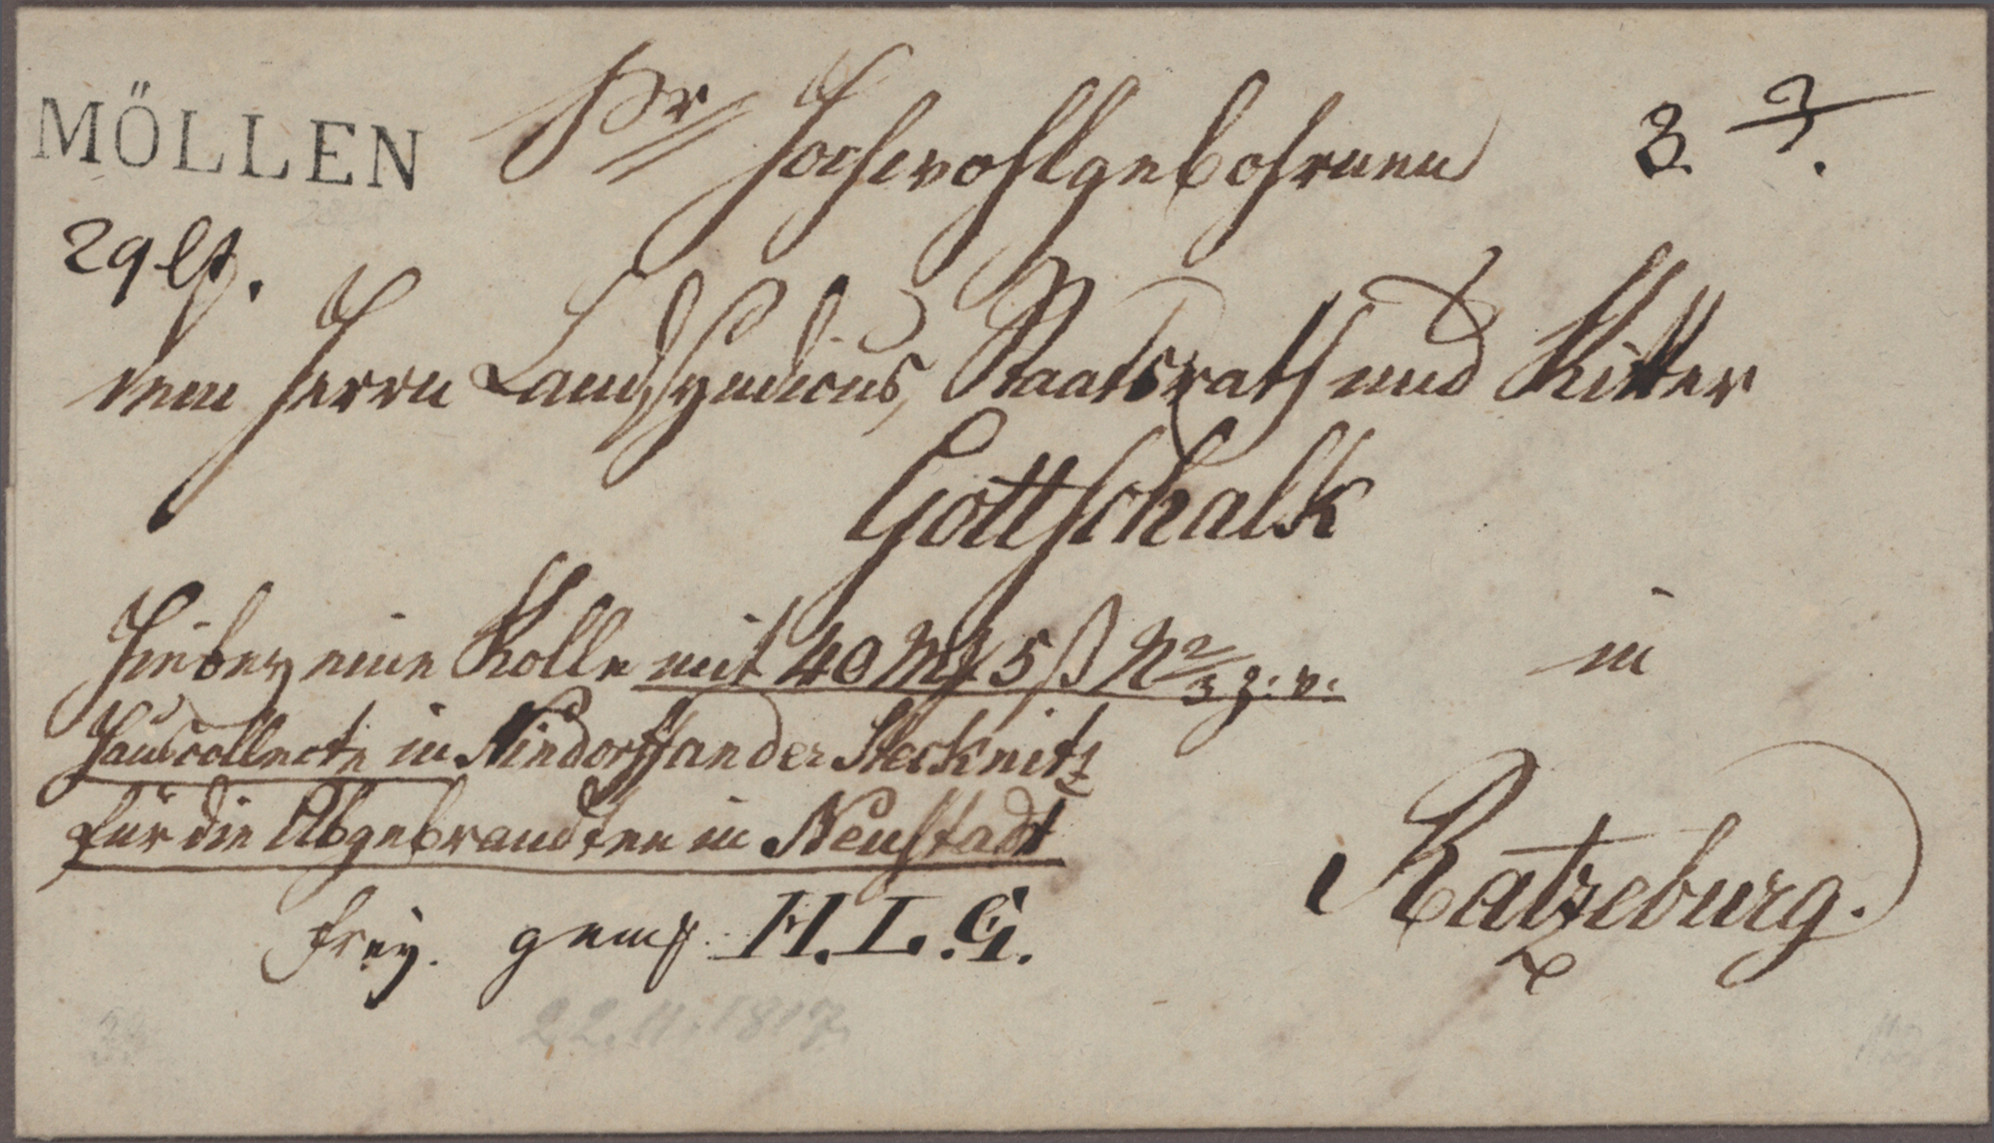 MÖLLEN
Sr Hochwohlgebohrnen
3.
29 lt.
dem Herrn Landsyndicus, Staatsrath und Ritter
Gottschalk
Hiebey eine Rolle mit 40 Mk 5 ß N 2/3 z. v.
in
Hauscollecte in Niendorff an der Stecknitz
für die Abgebrandten in Neustadt
Ratzeburg.
frey. H. L. G.
22.11.1817